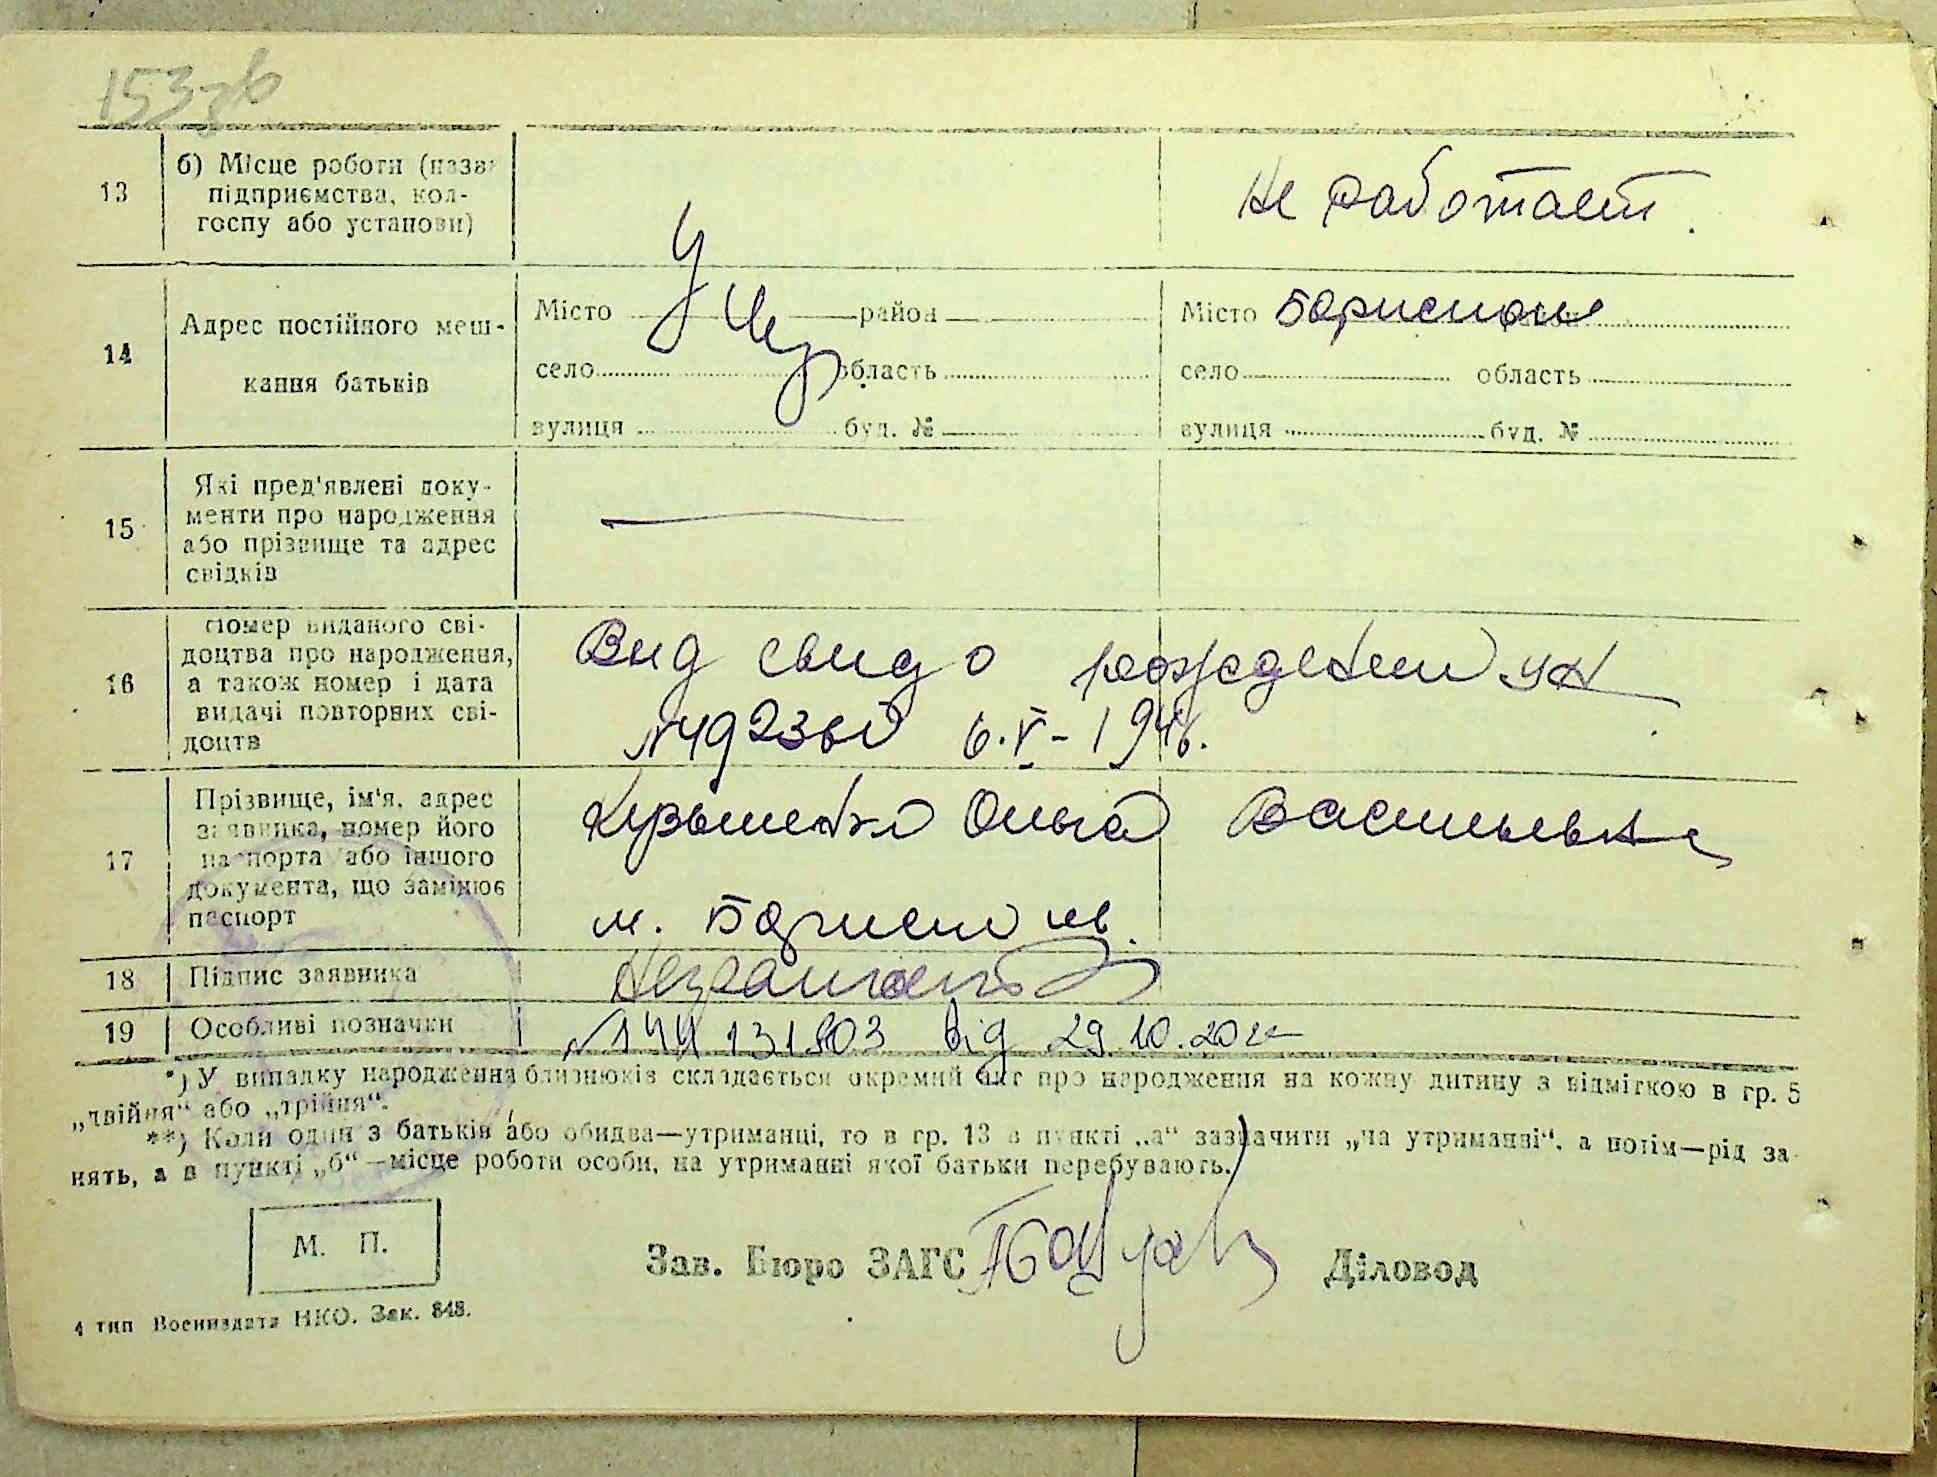 153зв
13
б) Місце роботи (назва
підприємства, кол-
госпу або установи)
Не работает.
14
Адрес постійного меш-
кання батьків
Місто район
село область
вулиця буд. №
Місто Борисполь
село область
вулиця буд. №
15
Які пред'явлені доку-
менти про народження
або прізвище та адрес
свідків
16
Номер виданого сві-
доцтва про народження,
а також номер і дата
видачі повторних сві-
доцтв
Вид свид о рождении УК
6.V-1946.
17
Прізвище, ім'я, адрес
заявника, номер його
паспорта або іншого
документа, що замінює
паспорт
Ольга Васильевна
м. Борисполь.
18
Підпис заявника
19
Особливі позначки
від 29.10.20
*) У випадку народження близнюків складається окремий акт про народження на кожну дитину з відміткою в гр. 5
„двійня“ або „трійня“.
**) Коли один з батьків або обидва—утриманці, то в гр. 13 в пункті „а“ зазначити „на утриманні“, а потім—рід за-
нять, а в пункті „б“—місце роботи особи, на утриманні якої батьки перебувають.
М. П.
Зав. Бюро ЗАГС
Діловод
4 тип Воениздата НКО. Зак. 848.